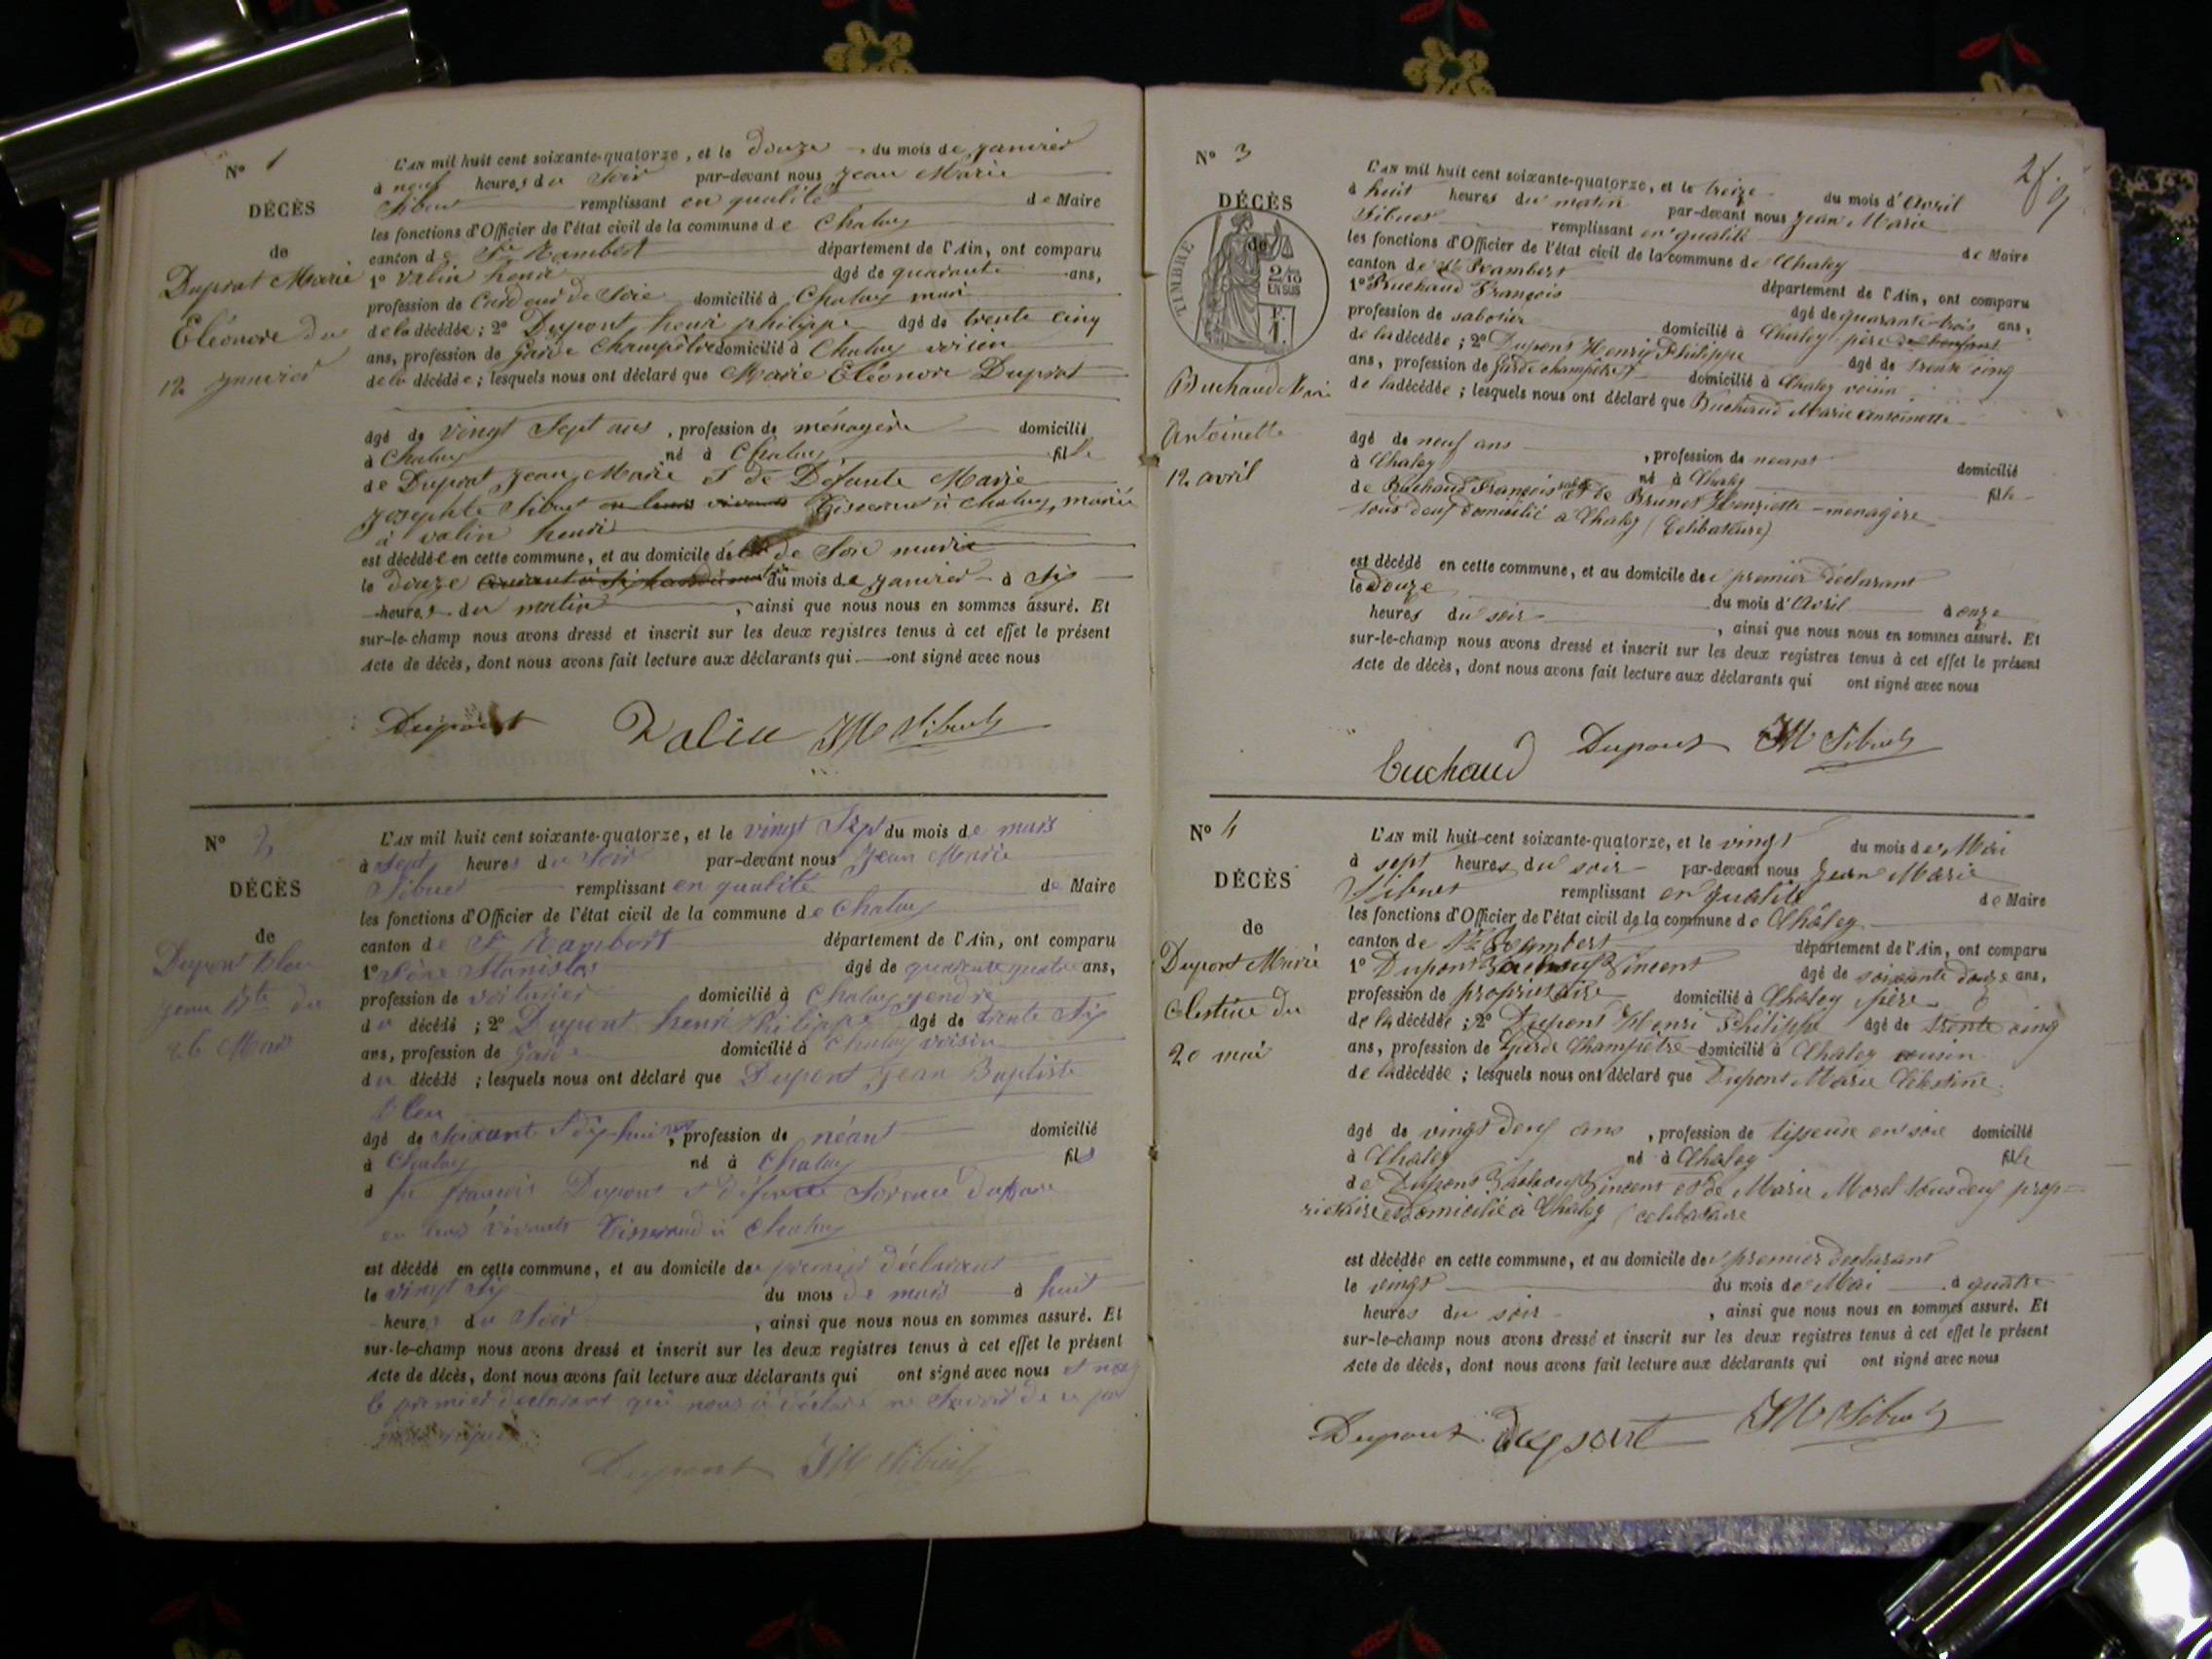 N° 1
DÉCÈS
de
Dupont Marie
Eléonore du
12 janvier
L'AN mil huit cent soixante-quatorze, et le douze du mois de janvier
à neuf heures du soir par-devant nous Jean Marie
Sibuet remplissant en qualité de Maire
les fonctions d'Officier de l'état civil de la commune de Chaley
canton de St Rambert département de l'Ain, ont comparu
1° Valin henri âgé de quarante ans,
profession de Cardeur de Soie domicilié à Chaley mari
de la décédée; 2° Dupont henri philippe âgé de trente cinq
ans, profession de Garde Champêtre domicilié à Chaley voisin
de la décédée; lesquels nous ont déclaré que Marie Eléonore Dupont
âgé de vingt Sept ans, profession de ménagère domicilié
à Chaley né à Chaley, fille
de Dupont Jean Marie et de Défunte Marie
Josephte Sibuet en leurs vivants Tisserand à Chaley, mariée
à valin henri
est décédée en cette commune, et au domicile de de Son mari
le douze du mois de janvier à Six
heures du matin, ainsi que nous nous en sommes assuré. Et
sur-le-champ nous avons dressé et inscrit sur les deux registres tenus à cet effet le présent
Acte de décès, dont nous avons fait lecture aux déclarants qui ont signé avec nous
Dupont Valin JM Sibuet
N° 2
DÉCÈS
de
Dupont Bleu
Jean Bte du
26 Mars
L'AN mil huit cent soixante-quatorze, et le vingt Sept du mois de mars
à Sept heures du Soir par-devant nous Jean Marie
Sibuet remplissant en qualité de Maire
les fonctions d'Officier de l'état civil de la commune de Chaley
canton de St Rambert département de l'Ain, ont comparu
1° Stanislas âgé de quarante quatre ans,
profession de voiturier domicilié à Chaley gendre
du décédé; 2° Dupont henri Philippe âgé de trente Six
ans, profession de Garde domicilié à Chaley voisin
du décédé; lesquels nous ont déclaré que Dupont Jean Baptiste
Bleu
âgé de Soixante dix-huit ans, profession de néant domicilié
à Chaley né à Chaley fils
d feu françois Dupont et défunte
en leurs vivants Tisserand à Chaley
est décédé en cette commune, et au domicile du premier déclarant
le vingt Six du mois de mars à huit
heures du Soir, ainsi que nous nous en sommes assuré. Et
sur-le-champ nous avons dressé et inscrit sur les deux registres tenus à cet effet le présent
Acte de décès, dont nous avons fait lecture aux déclarants qui ont signé avec nous et non
le premier déclarant qui nous a déclaré ne Savoir de ce
Dupont JM Sibuet
N° 3
DÉCÈS
de
TIMBRE
2/10
EN SUS
F.
1.
Buchaud Marie
Antoinette
12 avril
L'AN mil huit cent soixante-quatorze, et le treize du mois d'Avril
à huit heures du matin par-devant nous Jean Marie
Sibuet remplissant en qualité de Maire
les fonctions d'Officier de l'état civil de la commune de Chaley
canton de St Rambert département de l'Ain, ont comparu
1° Buchaud François âgé de quarante trois ans,
profession de sabotier domicilié à Chaley père
de la décédée; 2° Dupont Henri Philippe âgé de trente cinq
ans, profession de Garde champêtre domicilié à Chaley voisin
de la décédée; lesquels nous ont déclaré que Buchaud Marie Antoinette
âgé de neuf ans, profession de neant domicilié
à Chaley né à Chaley fille
de Buchaud François et de Brunet Henriette ménagère
tous deux domicilié à Chaley (Celibataire)
est décédé en cette commune, et au domicile du premier déclarant
le Douze du mois d'Avril à onze
heures du soir, ainsi que nous nous en sommes assuré. Et
sur-le-champ nous avons dressé et inscrit sur les deux registres tenus à cet effet le présent
Acte de décès, dont nous avons fait lecture aux déclarants qui ont signé avec nous
Buchaud Dupont JM Sibuet
N° 4
DÉCÈS
de
Dupont Marie
Celestine du
20 mai
L'AN mil huit cent soixante-quatorze, et le vingt du mois de Mai
à sept heures du soir par-devant nous Jean Marie
Sibuet remplissant en qualité de Maire
les fonctions d'Officier de l'état civil de la commune de Châley
canton de St Rambert département de l'Ain, ont comparu
1° Dupont Vincent âgé de soixante douze ans,
profession de propriétaire domicilié à Châley père
de la décédée; 2° Dupont Henri Philippe âgé de trente cinq
ans, profession de Garde Champêtre domicilié à Chaley
de la décédée; lesquels nous ont déclaré que Dupont Marie Célestine
âgé de vingt deux ans, profession de tisseuse en soie domicilié
à Chaley né à Chaley fille
de Dupont Vincent et de Marie Morel tous deux prop=
riétaire domicilié à Chaley (celibataire
est décédée en cette commune, et au domicile du premier declarant
le vingt du mois de Mai à quatre
heures du soir, ainsi que nous nous en sommes assuré. Et
sur-le-champ nous avons dressé et inscrit sur les deux registres tenus à cet effet le présent
Acte de décès, dont nous avons fait lecture aux déclarants qui ont signé avec nous
Dupont Dupont JM Sibuet